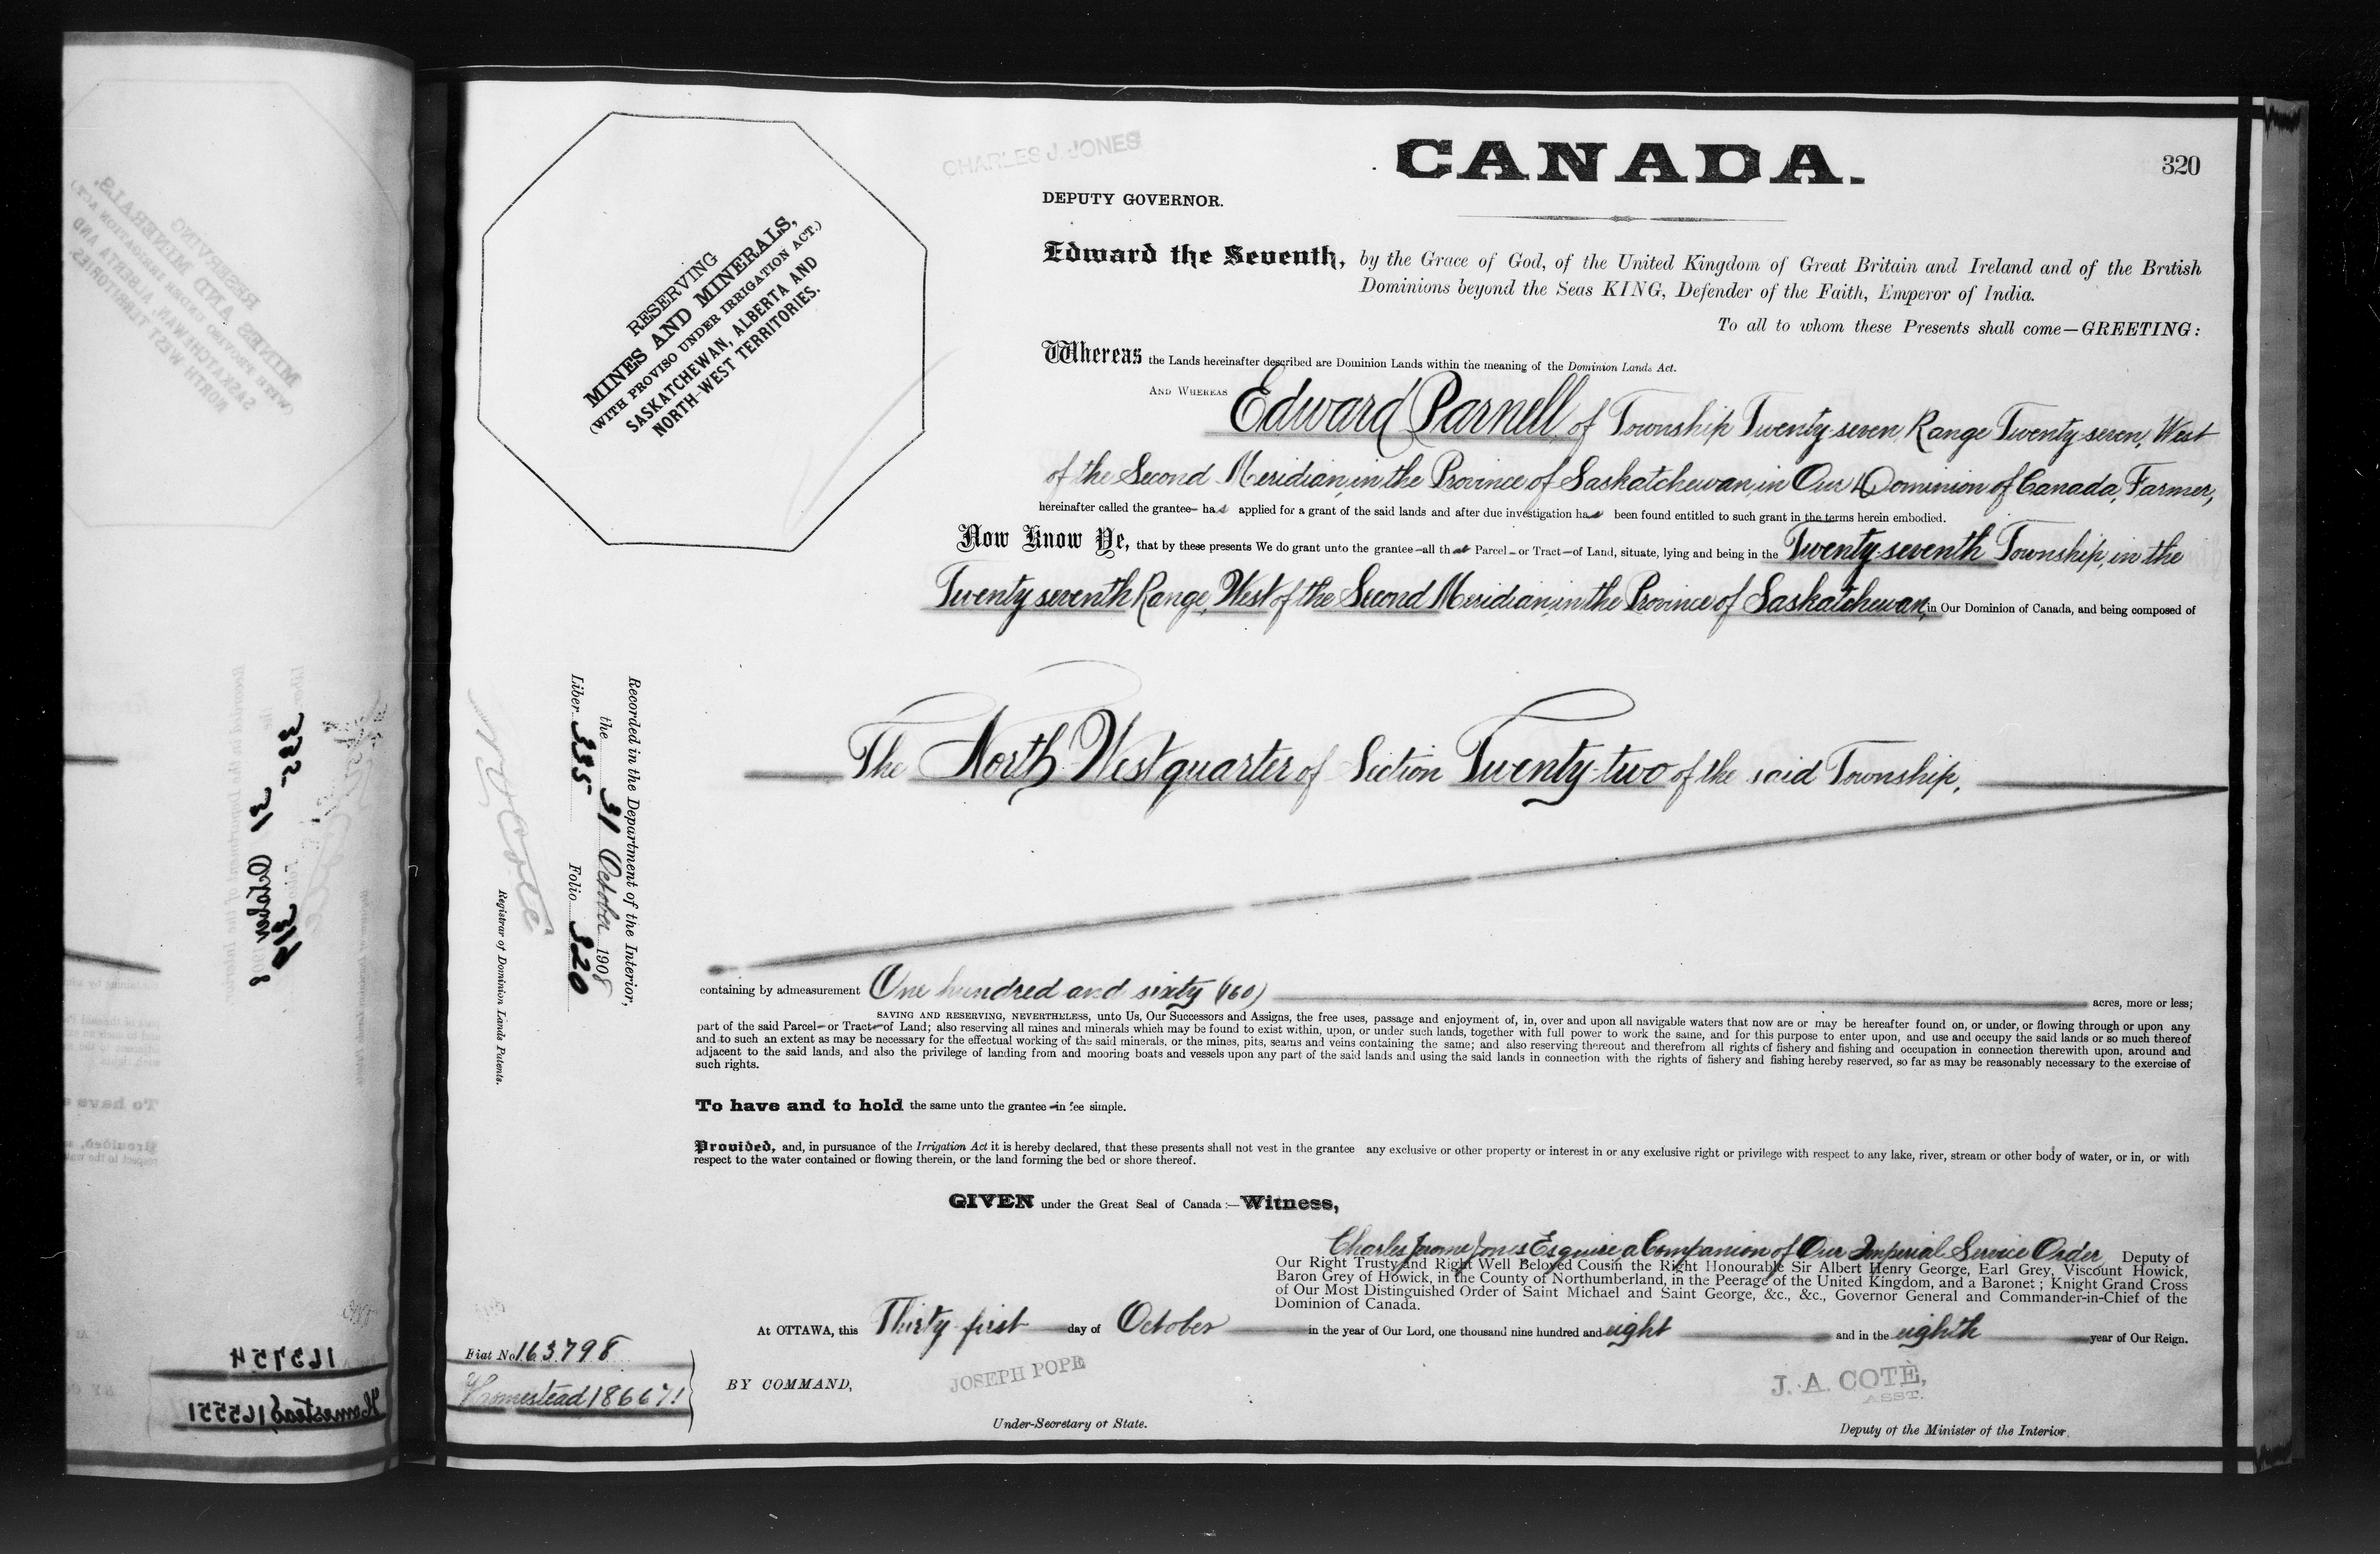 CHARLES J. JONES
CANADA.
320
DEPUTY GOVERNOR.
RESERVING
MINES AND MINERALS,
(WITH PROVISO UNDER IRRIGATION ACT.)
SASKATCHEWAN, ALBERTA AND
NORTH-WEST TERRITORIES.
Edward the Seventh, by the Grace of God, of the United Kingdom of Great Britain and Ireland and of the British
Dominions beyond the Seas KING, Defender of the Faith, Emperor of India.
To all to whom these Presents shall come—GREETING:
Whereas the Lands hereinafter described are Dominion Lands within the meaning of the Dominion Lands Act.
AND WHEREAS Edward Parnell, of Township Twenty-seven, Range Twenty-seven, West
of the Second Meridian, in the Province of Saskatchewan, in Our Dominion of Canada, Farmer,
hereinafter called the grantee— has applied for a grant of the said lands and after due investigation has been found entitled to such grant in the terms herein embodied.
Now Know Ye, that by these presents We do grant unto the grantee—all that Parcel—or Tract—of Land, situate, lying and being in the Twenty-seventh Township, in the
Twenty-seventh Range, West of the Second Meridian, in the Province of Saskatchewan, in Our Dominion of Canada, and being composed of
The North West quarter of Section Twenty-two of the said Township,
Recorded in the Department of the Interior,
the 31 October 1908
Liber 335 Folio 320
N O Coté
Registrar of Dominion Lands Patents.
containing by admeasurement One hundred and sixty (160) acres, more or less;
SAVING AND RESERVING, NEVERTHELESS, unto Us, Our Successors and Assigns, the free uses, passage and enjoyment of, in, over and upon all navigable waters that now are or may be hereafter found on, or under, or flowing through or upon any
part of the said Parcel—or Tract—of Land; also reserving all mines and minerals which may be found to exist within, upon, or under such lands, together with full power to work the same, and for this purpose to enter upon, and use and occupy the said lands or so much thereof
and to such an extent as may be necessary for the effectual working of the said minerals, or the mines, pits, seams and veins containing the same; and also reserving thereout and therefrom all rights of fishery and fishing and occupation in connection therewith upon, around and
adjacent to the said lands, and also the privilege of landing from and mooring boats and vessels upon any part of the said lands and using the said lands in connection with the rights of fishery and fishing hereby reserved, so far as may be reasonably necessary to the exercise of
such rights.
To have and to hold the same unto the grantee—in fee simple.
Provided, and, in pursuance of the Irrigation Act it is hereby declared, that these presents shall not vest in the grantee any exclusive or other property or interest in or any exclusive right or privilege with respect to any lake, river, stream or other body of water, or in, or with
respect to the water contained or flowing therein, or the land forming the bed or shore thereof.
GIVEN under the Great Seal of Canada:—Witness,
Charles Jerome Jones Esquire a Companion of Our Imperial Service Order Deputy of
Our Right Trusty and Right Well Beloved Cousin the Right Honourable Sir Albert Henry George, Earl Grey, Viscount Howick,
Baron Grey of Howick, in the County of Northumberland, in the Peerage of the United Kingdom, and a Baronet; Knight Grand Cross
of Our Most Distinguished Order of Saint Michael and Saint George, &c., &c., Governor General and Commander-in-Chief of the
Dominion of Canada.
At OTTAWA, this Thirty-first day of October in the year of Our Lord, one thousand nine hundred and eight and in the eighth year of Our Reign.
Fiat No 163798
Homestead 186671
BY COMMAND,
JOSEPH POPE
Under-Secretary of State.
J. A. COTÈ,
ASST.
Deputy of the Minister of the Interior.